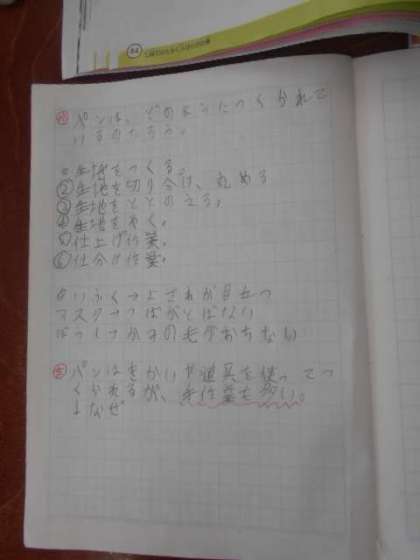 パンは、どのようにつくられて
いるのだろう。
①生地をつくる。
②生地を切り分け、丸める
③生地をととのえる。
④生地をやく。
⑤仕上げ作業。
⑥仕分け作業。
白いふく→よごれが目立つ
マスク→つばがとばない
ぼうし→かみの毛がおちない
パンはきかいや道具を使ってつ
くられるが、手作業も多い。
なぜ